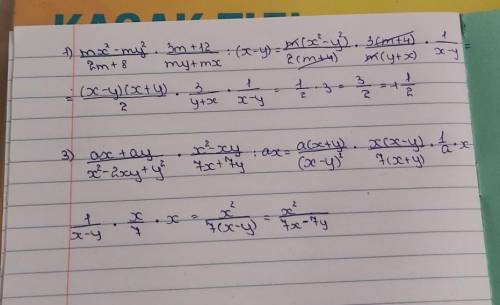 ҚАЗАҚ ТІЛІ
1) (mx²-my²)/(2m+8) · (3m+12)/(my+mx) : (x-y) = m(x²-y²)/2(m+4) · 3(m+4)/m(y+x) · 1/(x-y) =
= (x-y)(x+y)/2 · 3/(y+x) · 1/(x-y) = 1/2 · 3 = 3/2 = 1 1/2
3) (ax+ay)/(x²-2xy+y²) · (x²-xy)/(7x+7y) : ax = a(x+y)/(x-y)² · x(x-y)/7(x+y) · 1/a · x
1/(x-y) · x/7 · x = x²/7(x-y) = x²/(7x-7y)